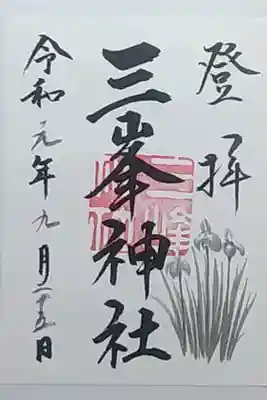 登拝
三峯神社
令和元年九月二五日